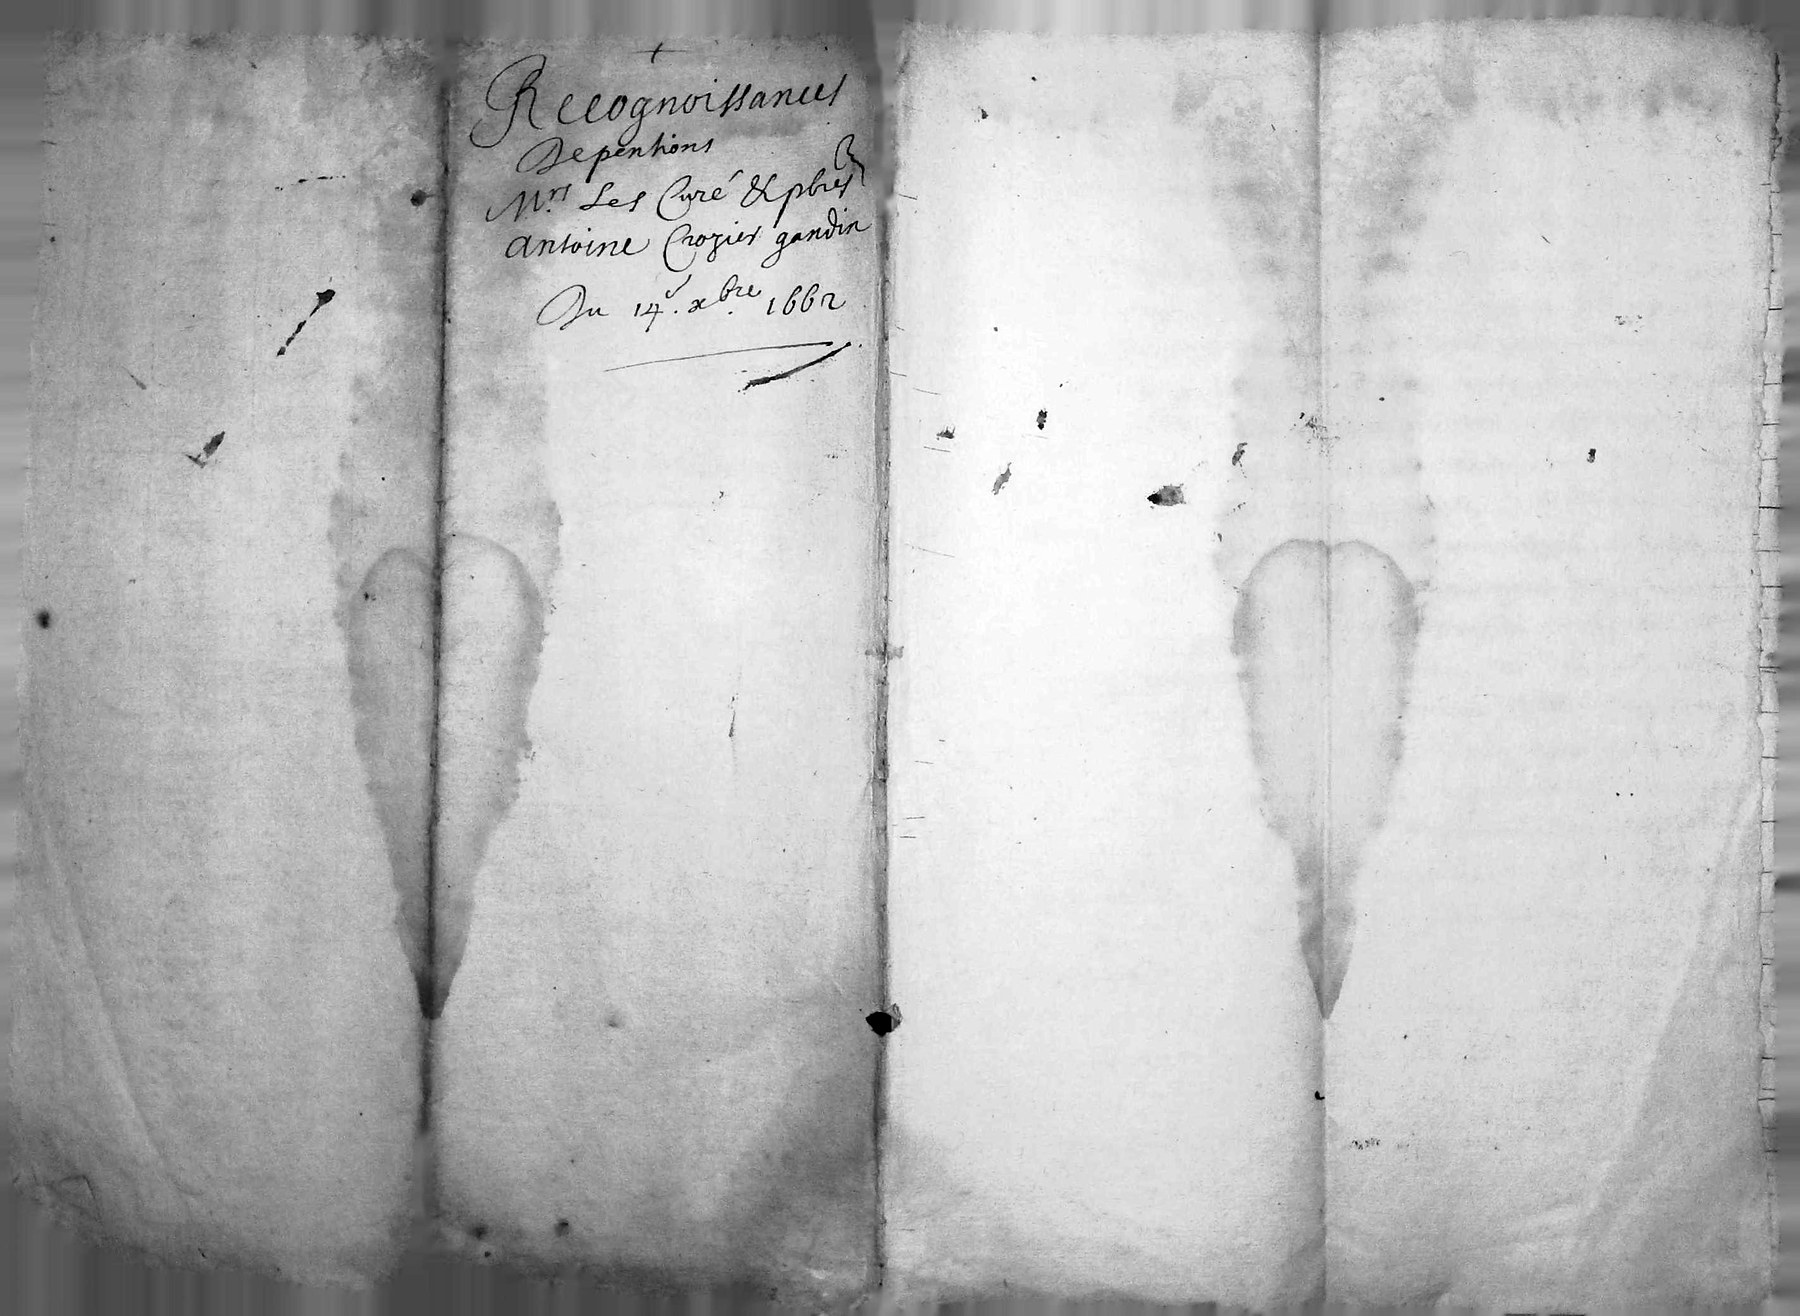 Recognoissances
De pentions
Mrs Les Curé & pbres
antoine Crozier gandin
Du 14e. xbre. 1662